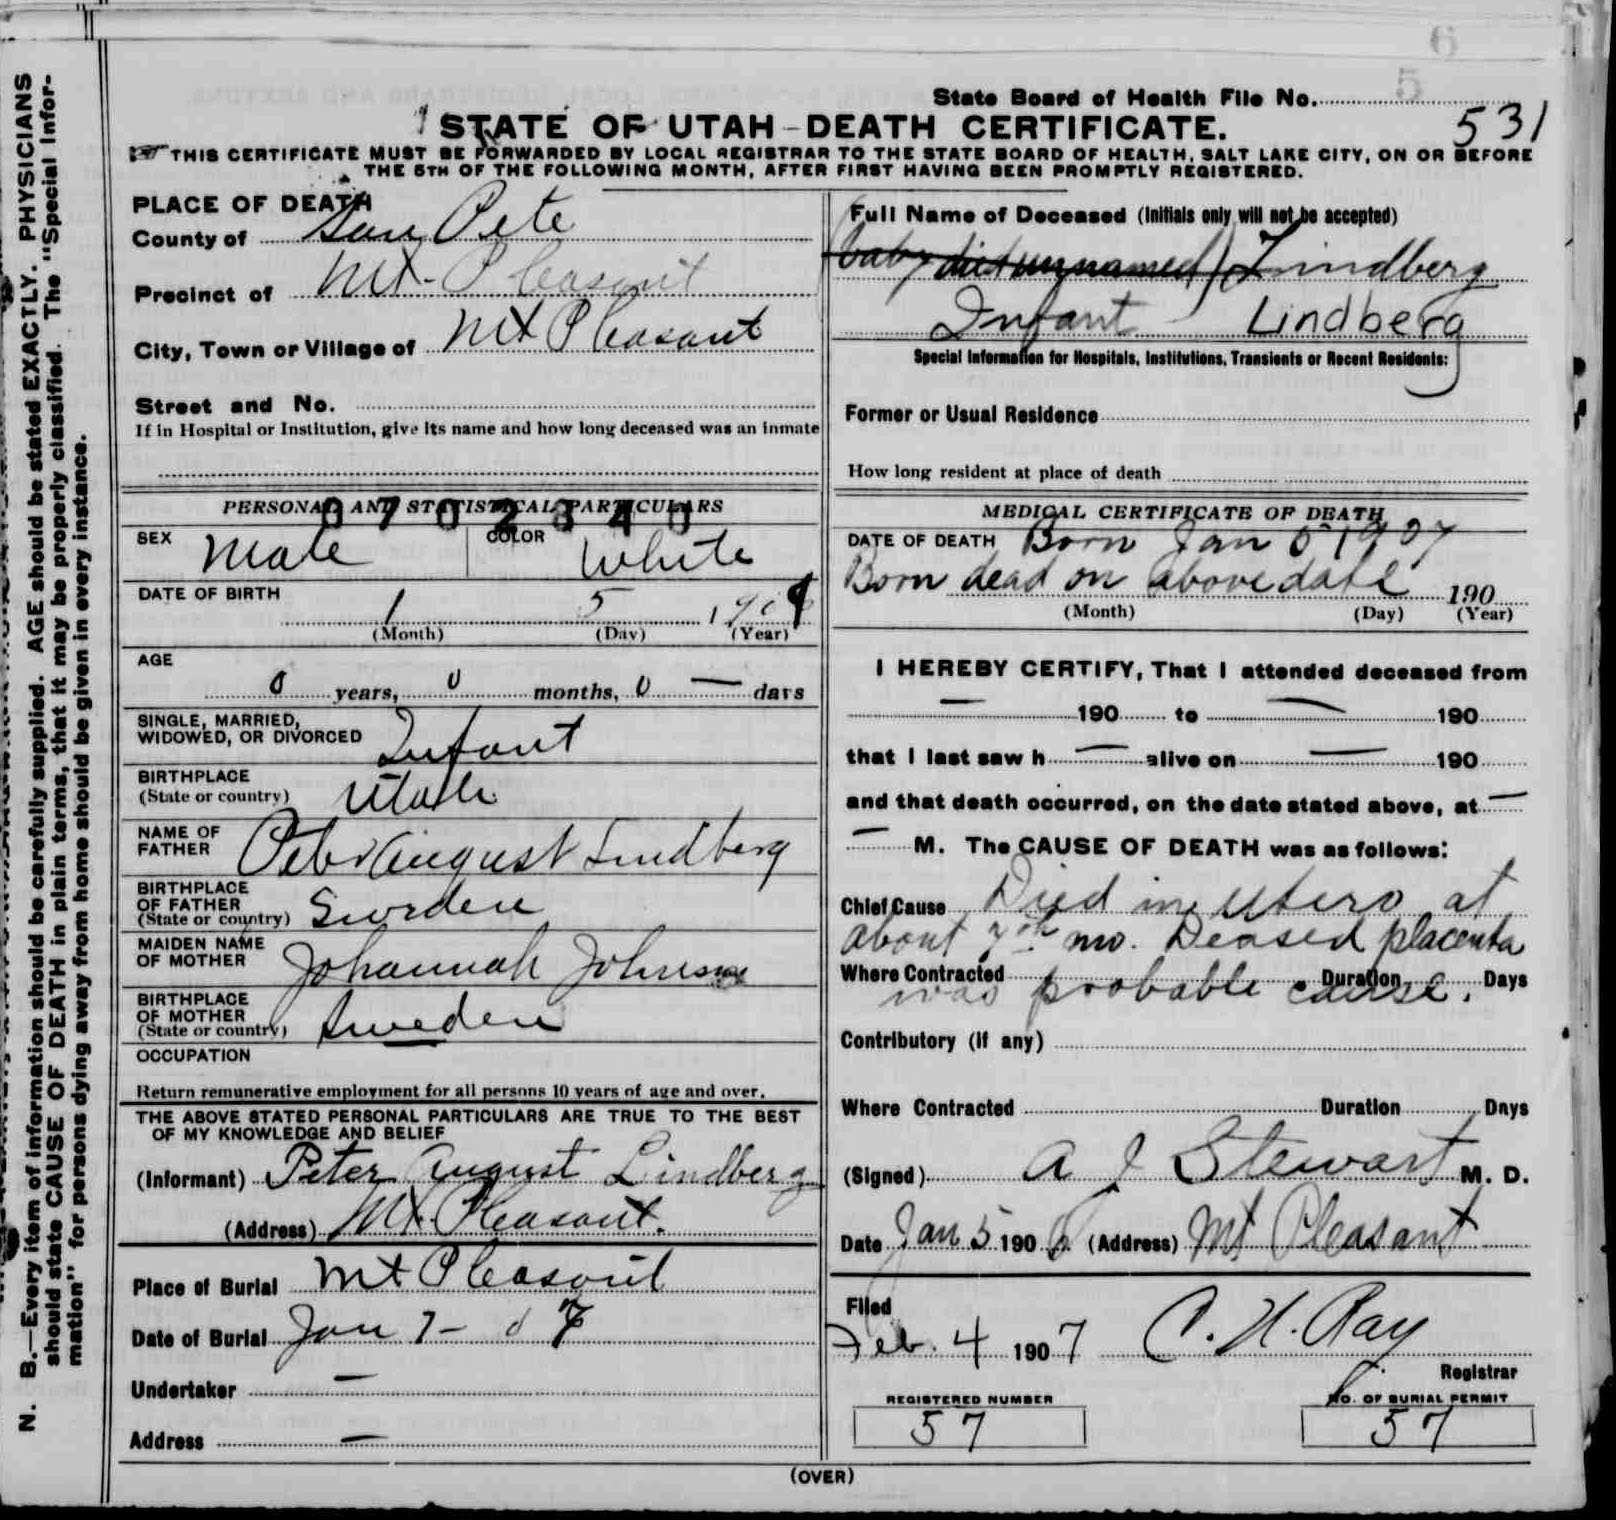 State Board of Health File No. 531
STATE OF UTAH-DEATH CERTIFICATE.
THIS CERTIFICATE MUST BE FORWARDED BY LOCAL REGISTRAR TO THE STATE BOARD OF HEALTH, SALT LAKE CITY, ON OR BEFORE
THE 5TH OF THE FOLLOWING MONTH, AFTER FIRST HAVING BEEN PROMPTLY REGISTERED.
N. B.—Every item of information should be carefully supplied. AGE should be stated EXACTLY. PHYSICIANS
should state CAUSE OF DEATH in plain terms, that it may be properly classified. The "Special Infor-
mation" for persons dying away from home should be given in every instance.
PLACE OF DEATH
County of San Pete
Precinct of Mt. Pleasant
City, Town or Village of Mt Pleasant
Street and No.
If in Hospital or Institution, give its name and how long deceased was an inmate
PERSONAL AND STATISTICAL PARTICULARS
0702340
SEX Male COLOR White
DATE OF BIRTH 1 5 190
(Month) (Day) (Year)
AGE
0 years, 0 months, 0 — days
SINGLE, MARRIED,
WIDOWED, OR DIVORCED Infant
BIRTHPLACE
(State or country) Utah
NAME OF
FATHER Peter August Lindberg
BIRTHPLACE
OF FATHER
(State or country) Sweden
MAIDEN NAME
OF MOTHER Johannah Johnson
BIRTHPLACE
OF MOTHER
(State or country) Sweden
OCCUPATION
Return remunerative employment for all persons 10 years of age and over.
THE ABOVE STATED PERSONAL PARTICULARS ARE TRUE TO THE BEST
OF MY KNOWLEDGE AND BELIEF
(Informant) Peter August Lindberg
(Address) Mt. Pleasant.
Place of Burial Mt Pleasant
Date of Burial Jan 7- 07
Undertaker —
Address —
Full Name of Deceased (Initials only will not be accepted)
(baby died unnamed) Lindberg
Infant Lindberg
Special Information for Hospitals, Institutions, Transients or Recent Residents:
Former or Usual Residence
How long resident at place of death
MEDICAL CERTIFICATE OF DEATH
DATE OF DEATH Born Jan 5 1907
Born dead on above date 190
(Month) (Day) (Year)
I HEREBY CERTIFY, That I attended deceased from
— 190 to — 190
that I last saw h — alive on — 190
and that death occurred, on the date stated above, at —
— M. The CAUSE OF DEATH was as follows:
Chief Cause Died in Utero at
about 7th mo. Deased placenta
Where Contracted Duration Days
was probable cause.
Contributory (if any)
Where Contracted Duration Days
(Signed) A J Stewart M. D.
Date Jan 5 1906 (Address) Mt Pleasant
Filed
Feb. 4 1907 C. H. Ray
Registrar
REGISTERED NUMBER
57
NO. OF BURIAL PERMIT
57
(OVER)